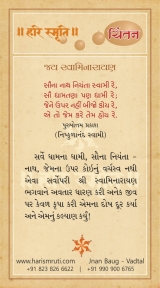 ॥ હરિ સ્મૃતિ ॥
ચિંતન
જય સ્વામિનારાયણ
સૌના નાથ નિયંતા સ્વામી રે,
સૌ ધામતણા પણ ધામી રે;
જેને ઉપર નહીં બીજો કોય રે,
એ તો જેમ કરે તેમ હોય રે.
પુરુષોત્તમ પ્રકાશ
(નિષ્કુળાનંદ સ્વામી)
સર્વે ધામના ધામી, સૌના નિયંતા -
નાથ, જેમના ઉપર કોઈનું વર્ચસ્વ નથી
એવા સર્વોપરી શ્રી સ્વામિનારાયણ
ભગવાને અવતાર ધારણ કરી અનેક જીવ
પર કેવળ કૃપા કરી એમના દોષ દૂર કર્યા
અને એમનું કલ્યાણ કર્યું!
www.harismruti.com
Jnan Baug - Vadtal
+91 823 826 6622
+91 990 900 6765